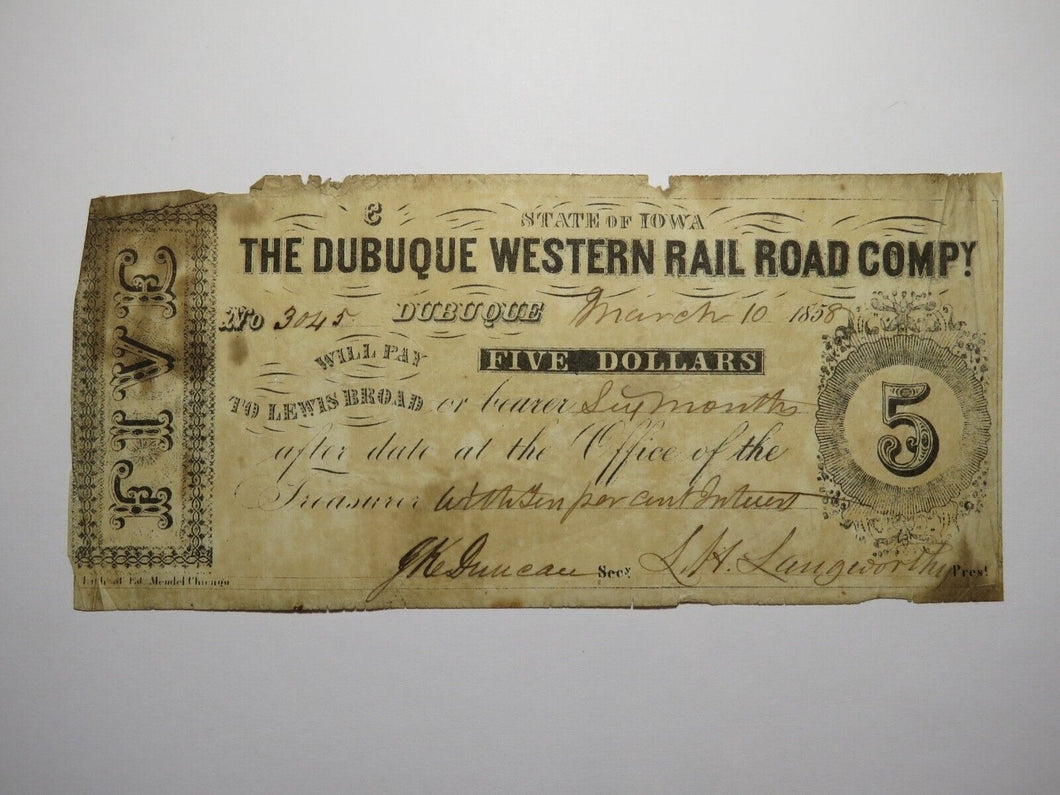 FIVE
C
STATE OF IOWA
THE DUBUQUE WESTERN RAIL ROAD COMPY.
No 3045 DUBUQUE March 10 1858
WILL PAY FIVE DOLLARS
TO LEWIS BROAD or bearer Six months
5
after date at the Office of the
Treasurer with ten per cent Interest
JK Duncan Secy. L. H. Langworthy Prest.
Lith. of Ed. Mendel Chicago